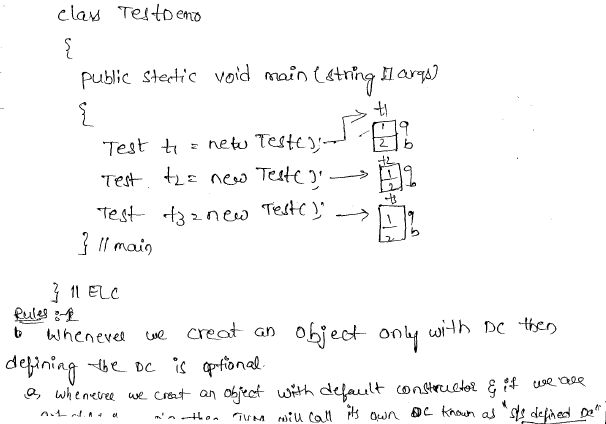 class TestDemo
{
public static void main (string [] args)
{
Test t1 = new Test(); t1 1 a 2 b
Test t2 = new Test(); t2 1 a 2 b
Test t3 = new Test(); t3 1 a 2 b
} // main
} // ELC
Rules :-
Whenever we creat an object only with DC then
defining the DC is optional.
whenever we creat an object with default constructor & if we are
then JVM will call its own DC known as "s/s defined DC"